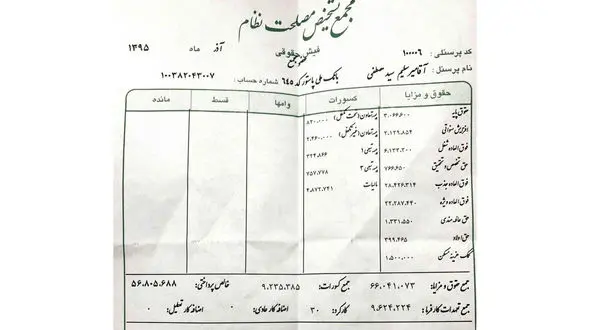 مجمع تشخیص مصلحت نظام
فیش حقوقی
آذر ماه ۱۳۹۵
عضو مجمع
کد پرسنلی : ۱۰۰۰۰۶
نام پرسنل : آقامیرسلیم سید مصطفی
بانک ملی پاستور کد ۶۴۵
شماره حساب : ۱۰۰۳۸۲۰۴۳۰۰۷
حقوق و مزایا کسورات وامها قسط مانده
حقوق پایه ۳,۰۶۶,۶۰۰ بیمه تعاون (تحت تکفل) ۸۲۰,۰۰۰
افزایش سنواتی ۲,۱۲۹,۸۵۴ بیمه تعاون (غیر تکفل) ۲,۴۶۰,۰۰۰
فوق العاده شغل ۶,۱۳۳,۲۰۰ بیمه تیپی ۱ ۳۲۴,۸۶۶
حق تخصص و تحقیق ۷۶۶,۶۵۰ بیمه تیپی ۲ ۷۵۷,۷۷۸
فوق العاده جذب ۲۸,۴۲۶,۳۱۴ مالیات ۴,۸۷۲,۷۴۱
فوق العاده ویژه ۲۲,۲۸۷,۴۴۰
حق عائله مندی ۱,۳۳۱,۵۵۰
حق اولاد ۳۹۹,۴۶۵
کمک هزینه مسکن ۱,۵۰۰,۰۰۰
جمع حقوق و مزایا: ۶۶,۰۴۱,۰۷۳ جمع کسورات: ۹,۲۳۵,۳۸۵ خالص پرداختی: ۵۶,۸۰۵,۶۸۸
جمع تعهدات کارفرما: ۹,۶۲۴,۲۲۴ کارکرد: ۳۰ اضافه کار عادی: ۰ اضافه کار تعطیل: ۰